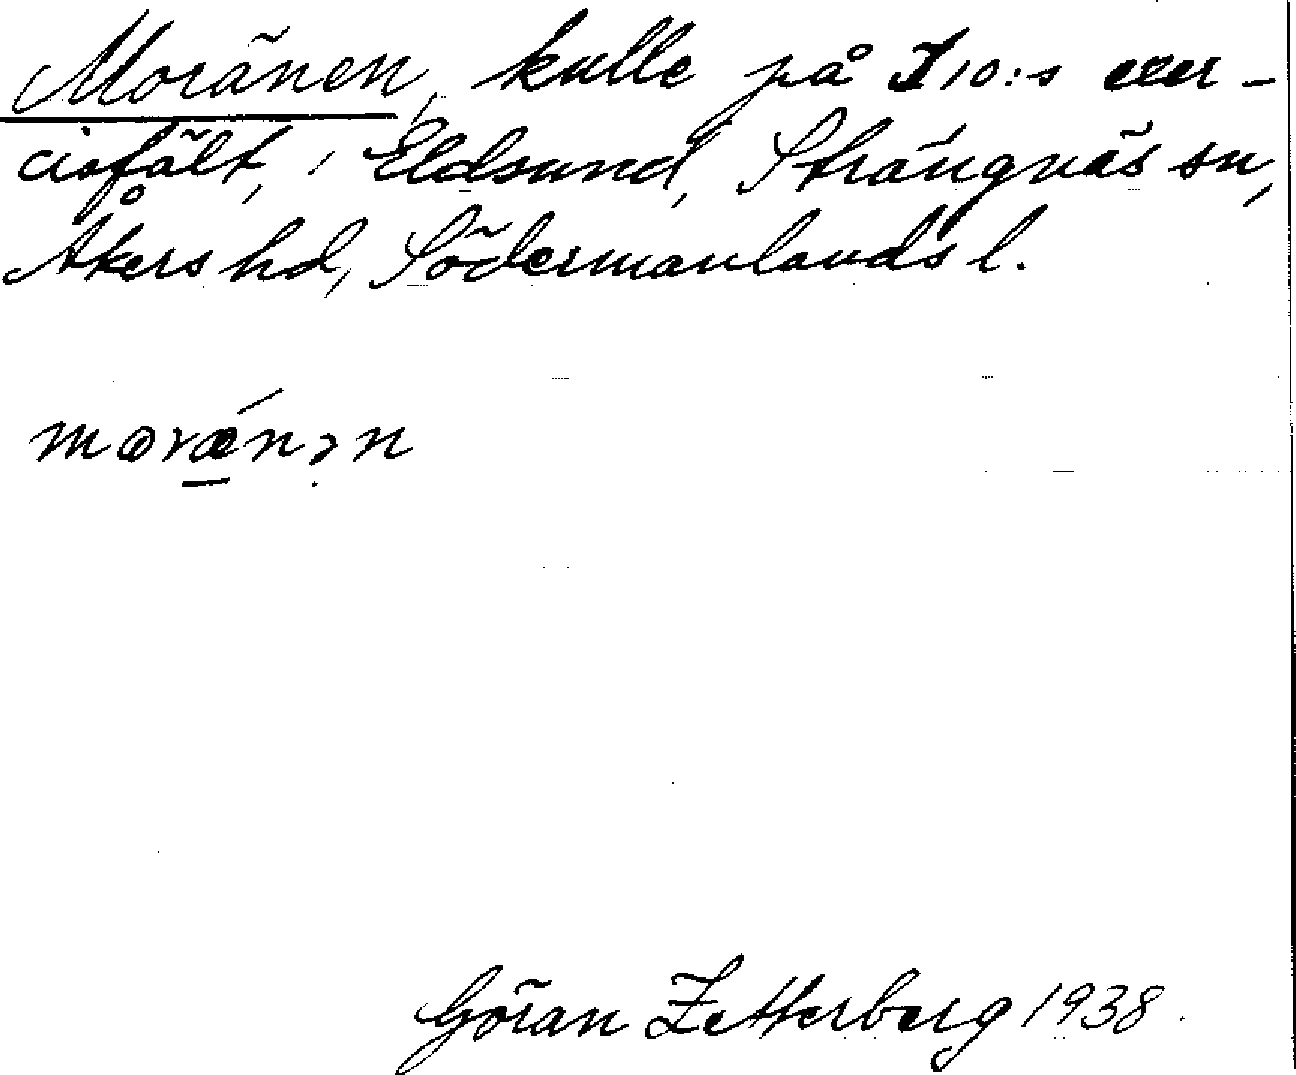 Moränen, kulle på I 10:s exer-
cisfält, i Eldsund, Strängnäs sn,
Åkers hd, Södermanlands l.
morǽnən
Göran Zetterberg 1938.